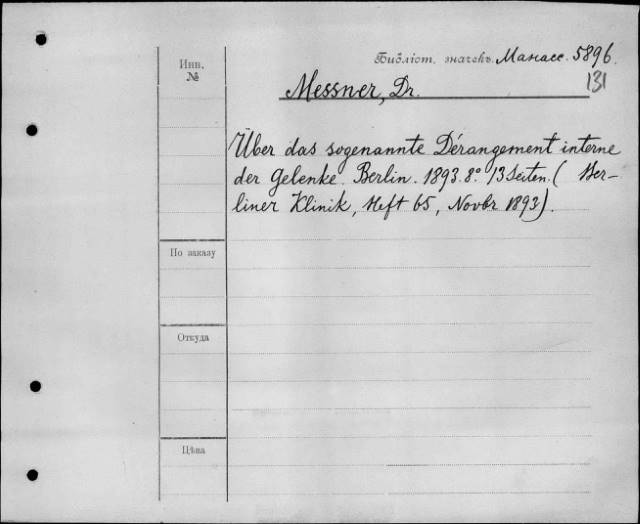 Инв.
№
Библіот. значекъ Манасс. 5896.
131
Messner, Dr.
Über das sogenannte Dérangement interne
der Gelenke. Berlin. 1893. 8.° 13 Seiten. ( Ber-
liner Klinik, Heft 65, Novbr 1893).
По заказу
Откуда
Цѣна